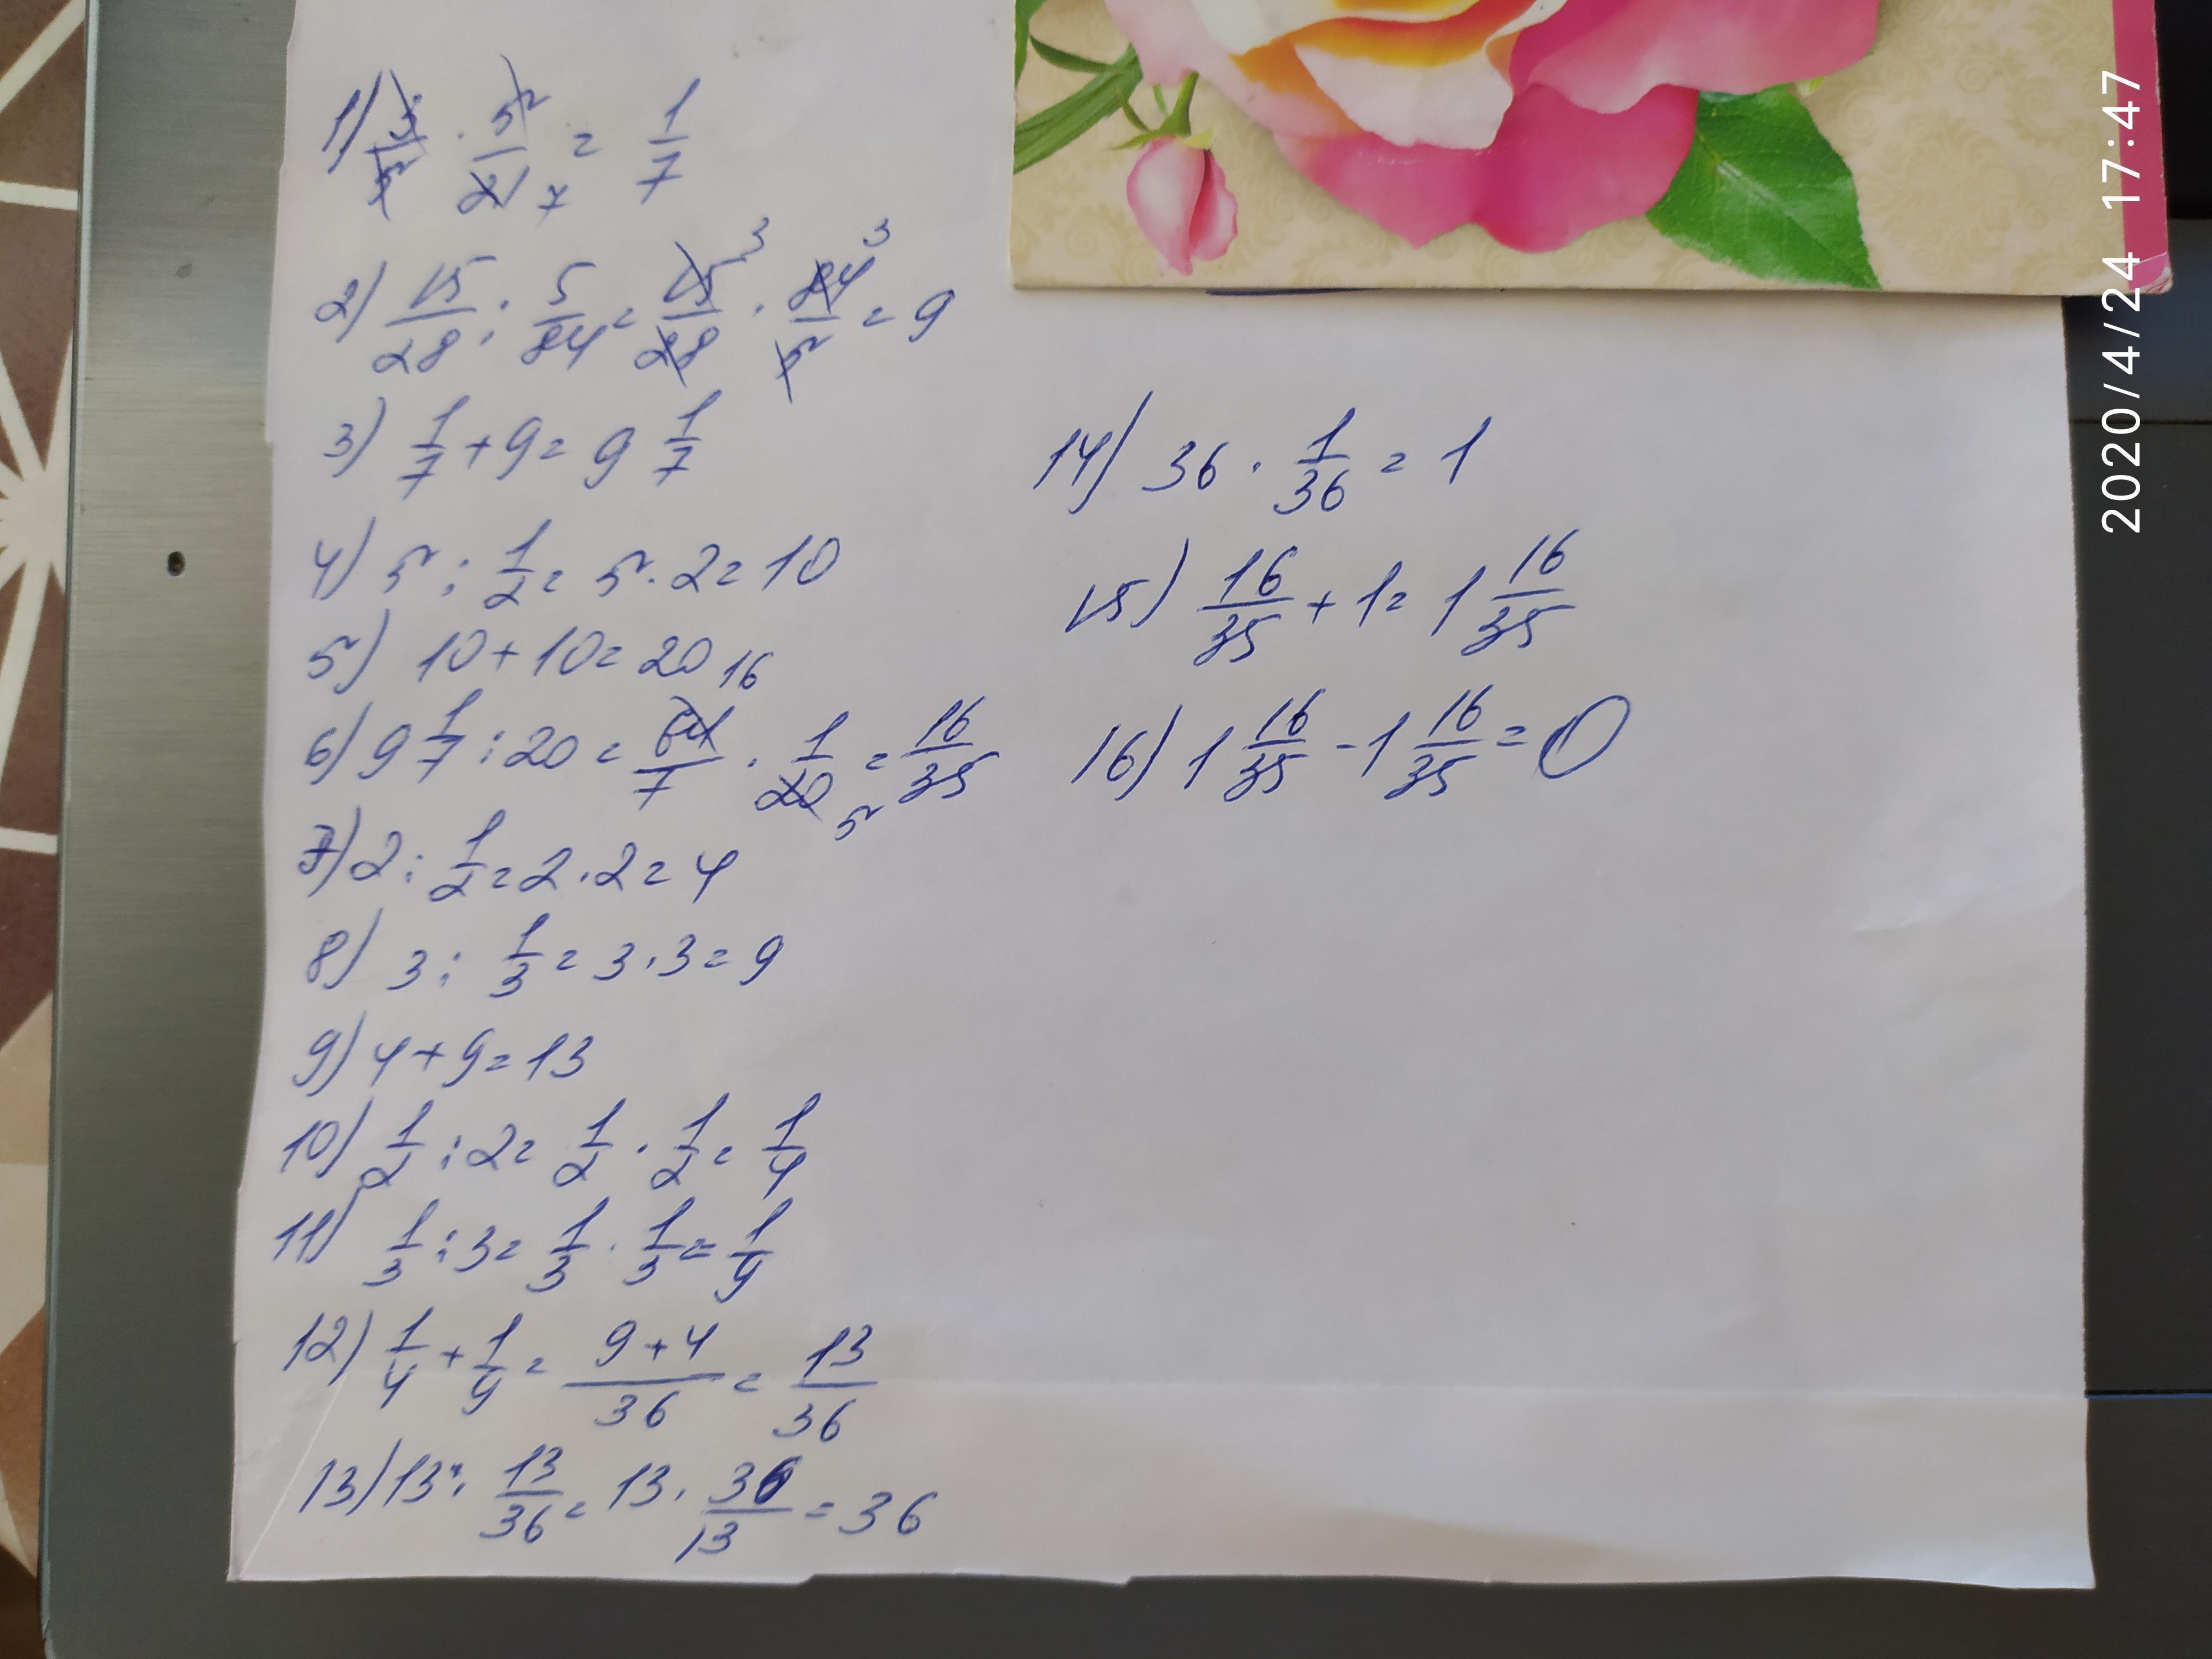 1) 3/5 · 5/21 7 = 1/7
2) 15/28 : 5/84 = 15 3/28 · 84 3/5 = 9
3) 1/7 + 9 = 9 1/7
4) 5 : 1/2 = 5 · 2 = 10
5) 10 + 10 = 20
6) 9 1/7 : 20 = 64 16/7 · 1/20 5 = 16/35
7) 2 : 1/2 = 2 · 2 = 4
8) 3 : 1/3 = 3 · 3 = 9
9) 4 + 9 = 13
10) 1/2 : 2 = 1/2 · 1/2 = 1/4
11) 1/3 : 3 = 1/3 · 1/3 = 1/9
12) 1/4 + 1/9 = 9 + 4/36 = 13/36
13) 13 : 13/36 = 13 · 36/13 = 36
14) 36 · 1/36 = 1
15) 16/35 + 1 = 1 16/35
16) 1 16/35 - 1 16/35 = 0
2020/4/24 17:47